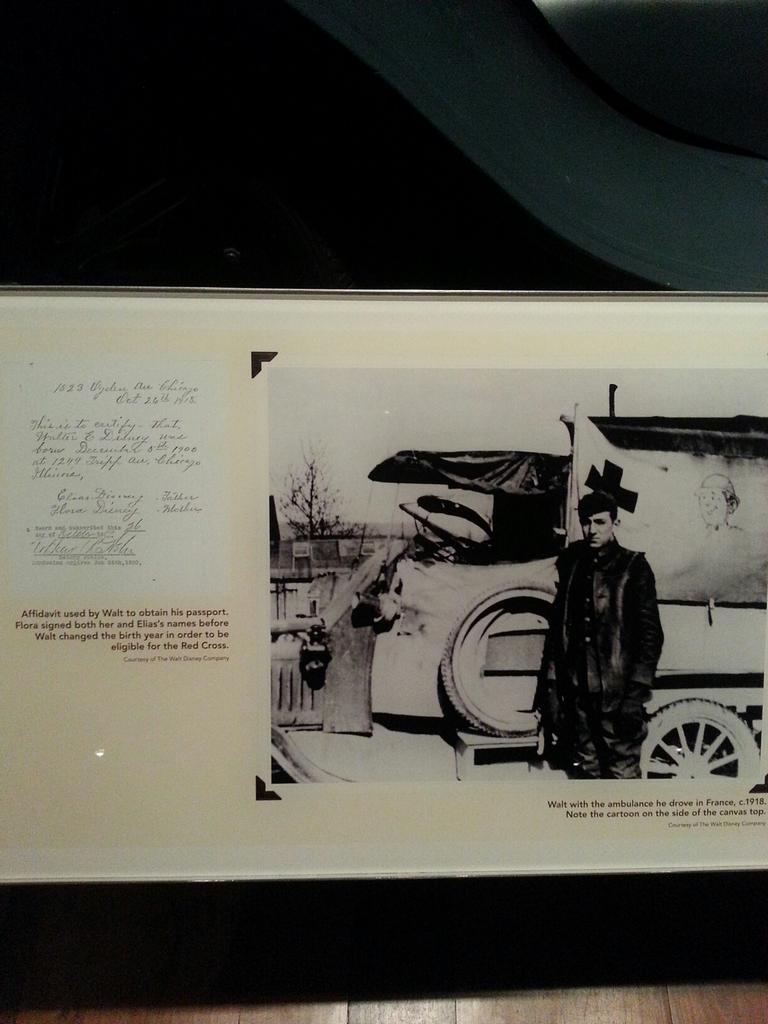 1523 Ogden Ave Chicago
Oct 26th 1918.
This is to certify - that
Walter E Disney was
born December 5th 1900
at 1249 Tripp Ave, Chicago
Illinois,
Elias Disney - Father
Flora Disney - Mother
Sworn and subscribed this 26
day of
Notary Public.
Affidavit used by Walt to obtain his passport.
Flora signed both her and Elias's names before
Walt changed the birth year in order to be
eligible for the Red Cross.
Courtesy of The Walt Disney Company
Walt with the ambulance he drove in France, c.1918.
Note the cartoon on the side of the canvas top.
Courtesy of The Walt Disney Company